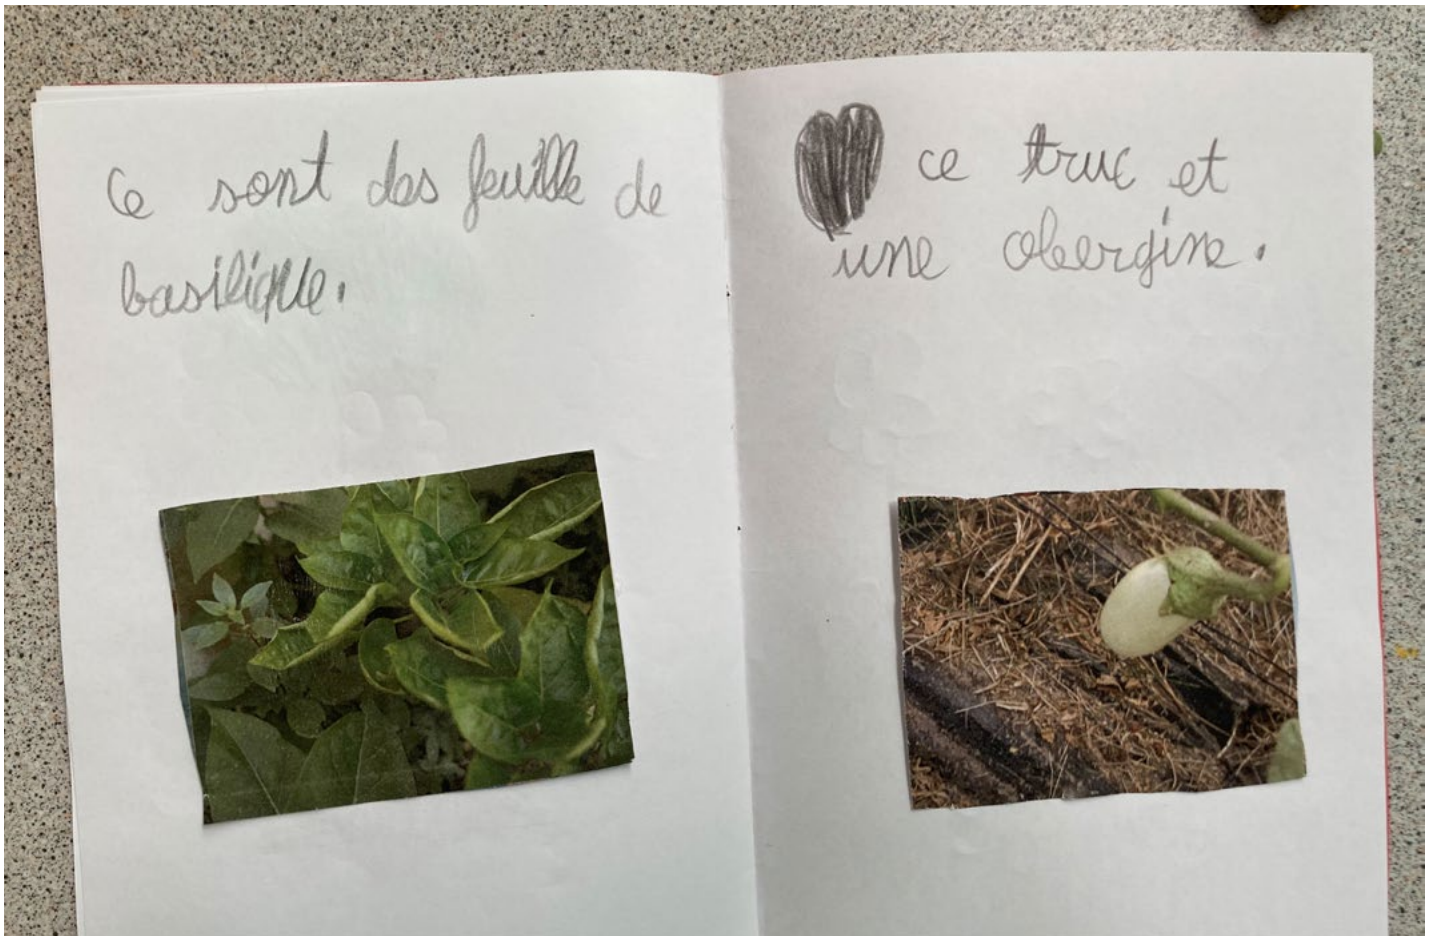 Ce sont des feuille de
basilique.
ce truc et
une obergine.